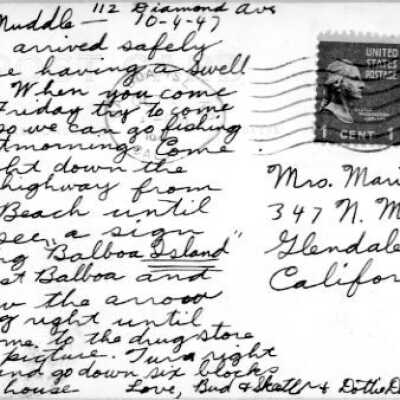 112 Diamond Ave
Muddle — 10-4-47
arrived safely
e having a swell
When you come
Friday try to come
so we can go fishing
t morning. Come
ht down the
highway from
Beach until
see a sign
ng "Balboa Island"
st Balboa and
w the arrow
g right until
ome to the drugstore
picture. Turn right
and go down six blocks
house Love, Bud & & Dottie D
UNITED
STATES
POSTAGE
1 CENT 1
Mrs. Mari
347 N. M
Glendale
Califor